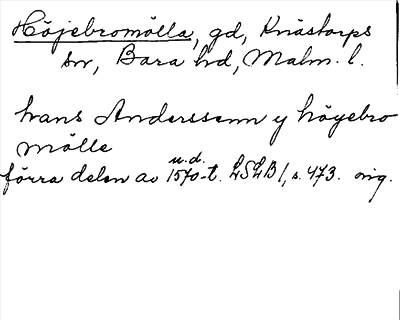 Höjebromölla, gd, Knästorps
sn, Bara hd, Malm. l.
hans Anderssenn y höyebro
mölle
u.d.
förra delen av 1570-t. LSLB 1, s. 473. orig.